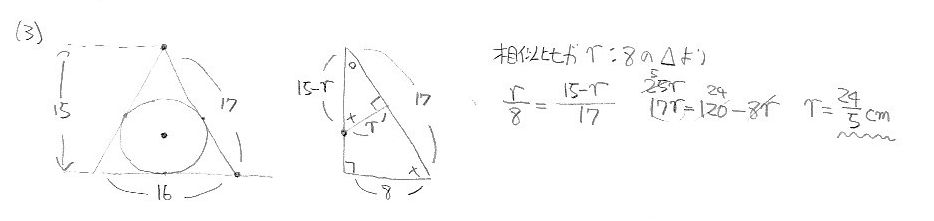 (3)
15
17
16
15-r
17
r
8
相似比が r:8の△より
r/8 = 15-r/17
25r 5
17r=120-8r 24
r=24/5 cm